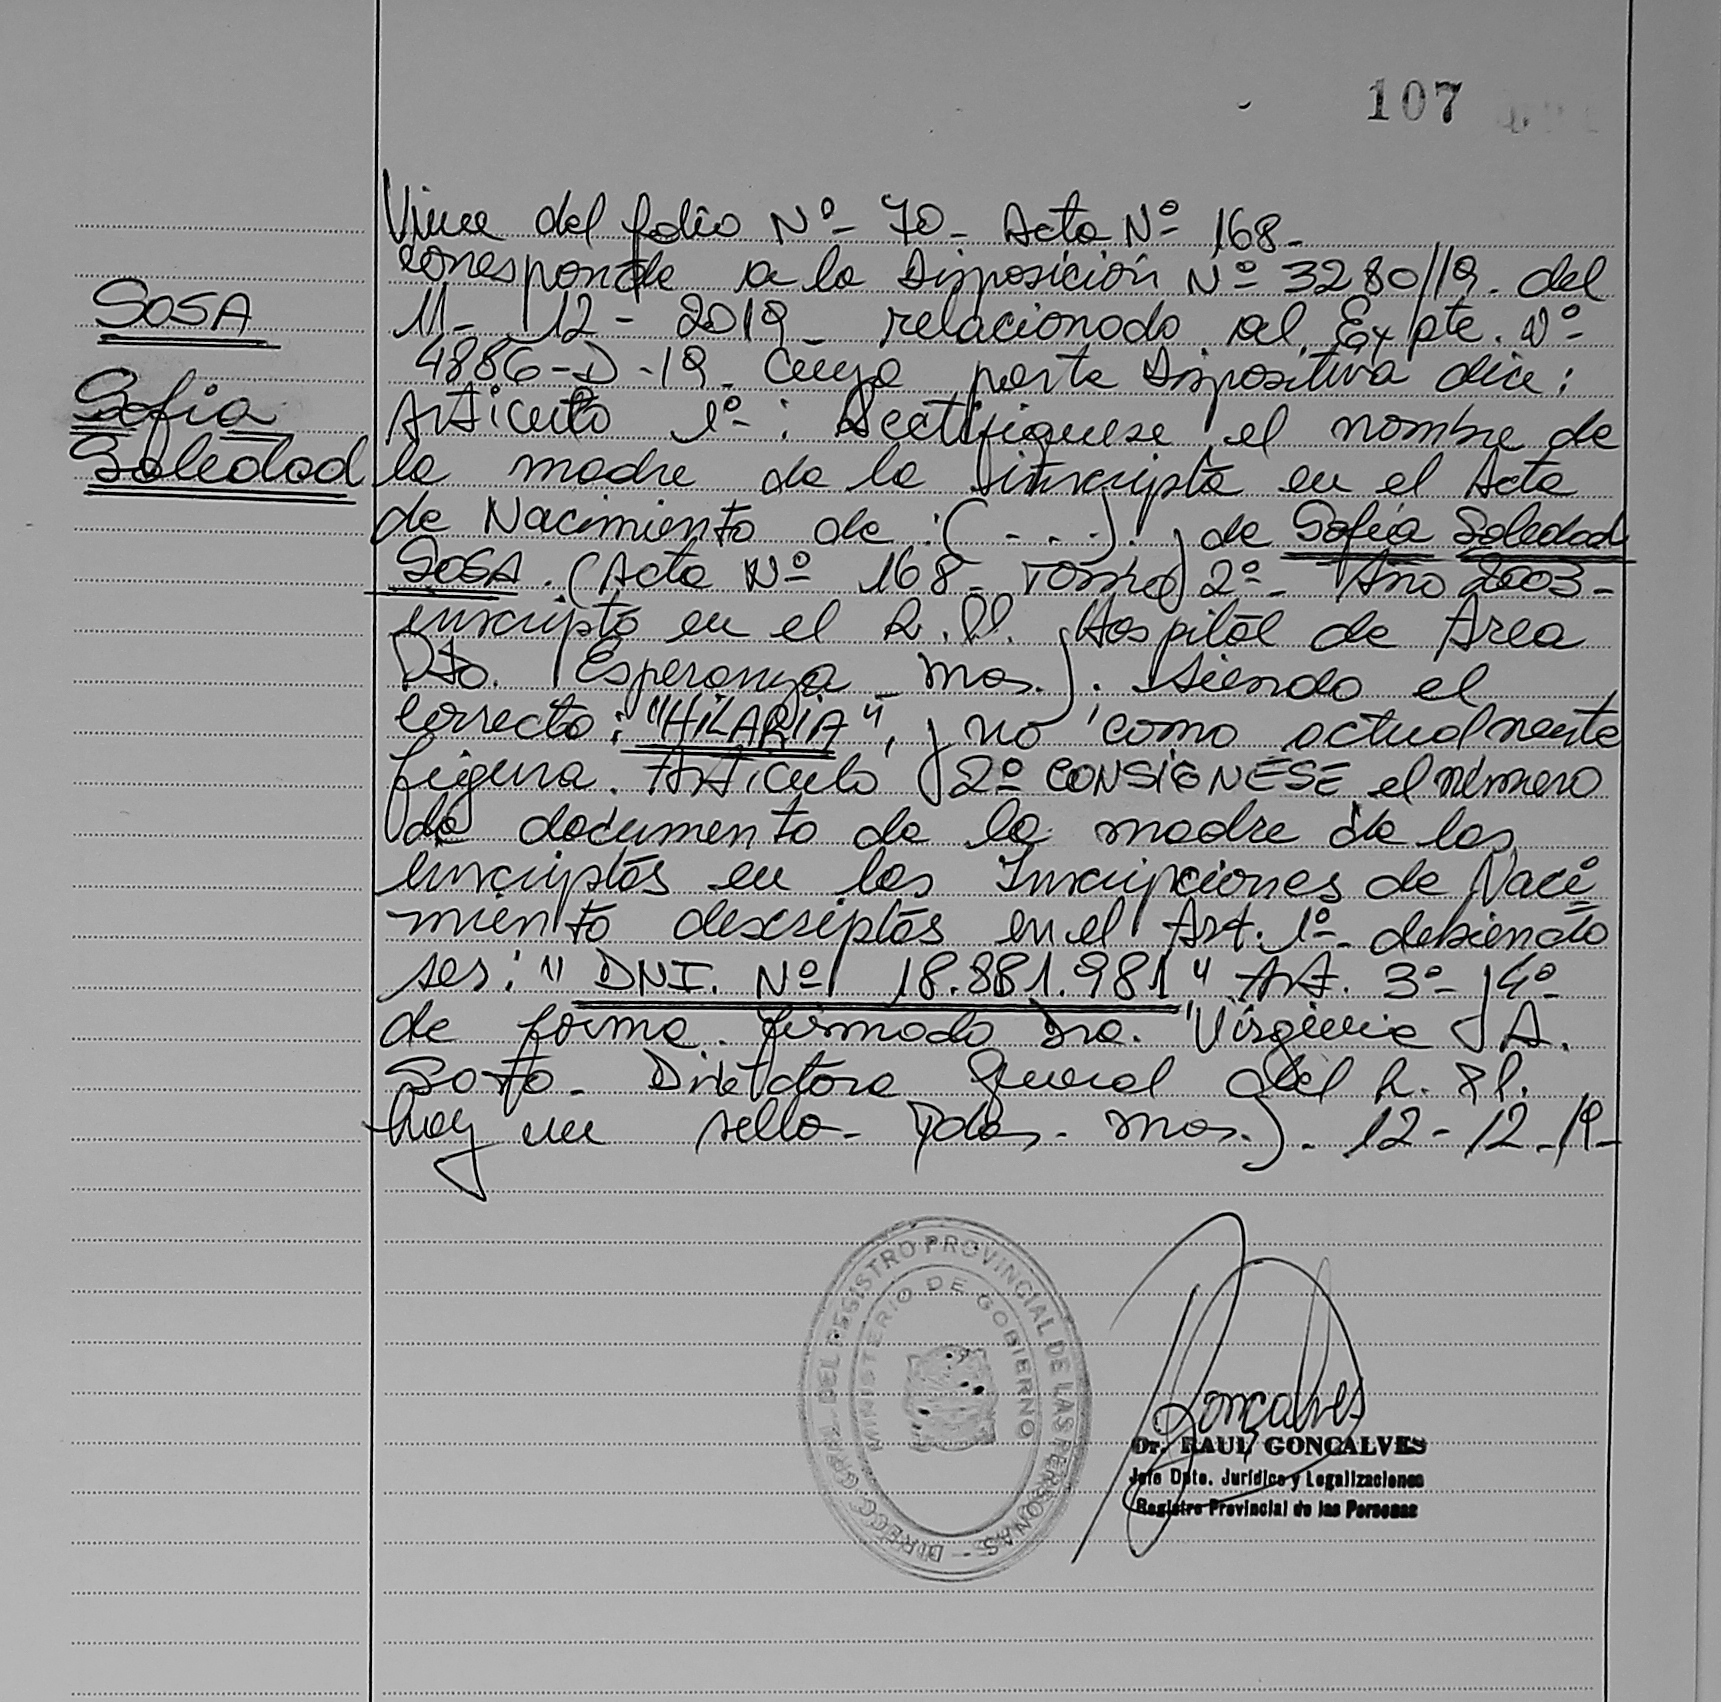 107
SOSA
Sofia
Soledad
Viene del folio Nº- 70- Acta Nº 168-
corresponde a la Disposición Nº 3280/19. del
11- 12- 2019 relacionado al Expte. Nº
4886-D-19. Cuya parte Dispositiva dice:
Articulo 1º: Rectifiquese el nombre de
la madre de la inscripta en el Acta
de Nacimiento de :(- - -). y de Sofia Soledad
SOSA. (Acta Nº 168- Tomo 2º- Año 2003-
inscripto en el R.PP. Hospital de Area
Pto. Esperanza - mns.). siendo el
correcto: "HiLARiA", y no como actualmente
figura. Articulo 2º CONSIGNESE el número
de documento de la madre de las
inscriptas en las Inscripciones de Naci
miento descriptas en el Art. 1º- debiendo
ser: "DNI. Nº 18.881.981" Art. 3º y 4º
de forma. firmado Dra. Virginia A.
Soto- Directora General del R.PP.
hay un sello- Pdas. mns.). 12-12-19-
DIRECC. GRAL. DEL REGISTRO PROVINCIAL DE LAS PERSONAS -
MINISTERIO DE GOBIERNO
Gonçalves
Dr. RAUL GONCALVES
Jefe Dpto. Jurídico y Legalizaciones
Registro Provincial de las Personas